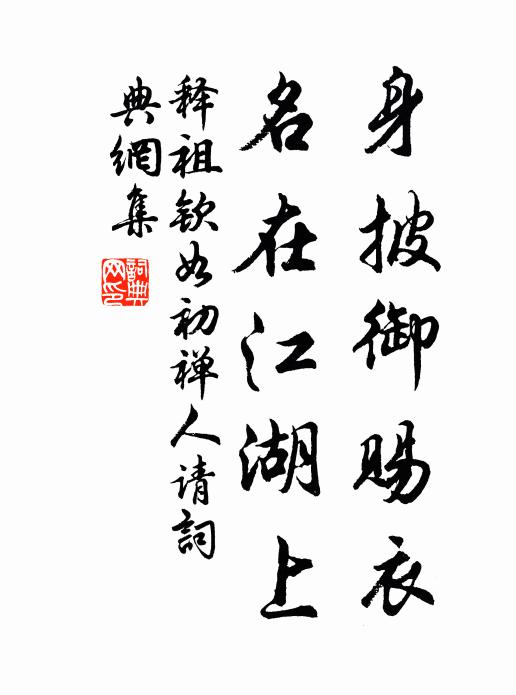 身披御赐衣
名在江湖上
释祖钦如初禅人请詞
典網集
詞典
网印